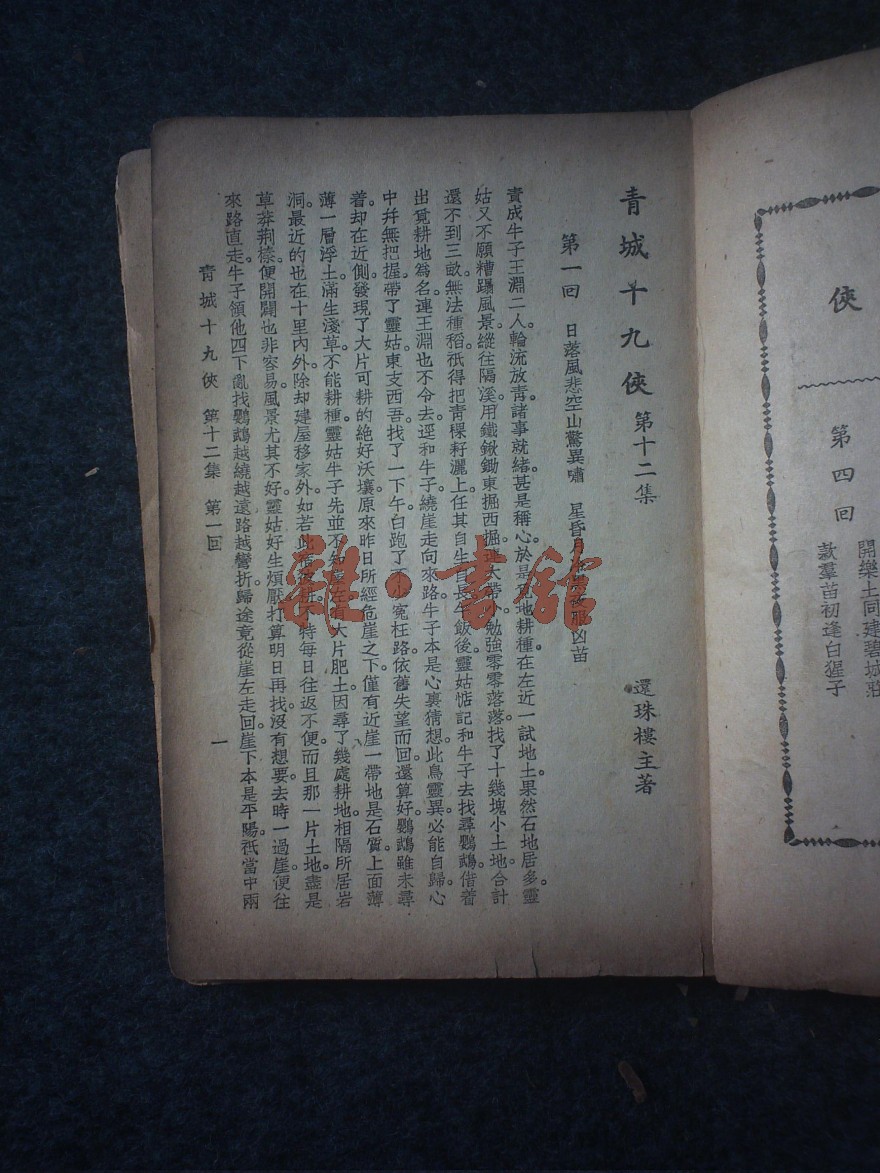 俠
第四回
開樂土同建碧城莊
款羣苗初逢白猩子
青城十九俠 第十二集
還珠樓主著
第一回 日落風悲空山驚異嘯 星昏月 服凶苗
責成牛子王淵二人輪流放青諸事就緒甚是稱心於是 地耕種在左近一試地土果然石地居多。靈
姑又不願糟蹋風景。縱往隔溪用鐵鍬鋤東掘西掘。 大帶小勉強零零落落找了十幾塊小土地合計
還不到三畝。無法種稻祇得把青稞籽灑上任其自生自長午飯後靈姑惦記和牛子去找尋鸚鵡借着
出覓耕地爲名連王淵也不令去。逕和牛子繞崖走向來路牛子本是心裏猜想此鳥靈異必能自歸。心
中幷無把握。帶了靈姑東支西吾。找了一下午白跑了不少冤枉路依舊失望而回。還算好。鸚鵡雖未尋
着却在近側發現了大片可耕的絶好沃壤。原來昨日所經危崖之下僅有近崖一帶地是石質。上面薄
薄一層浮土滿生淺草。不能耕種。靈姑牛子先並不知 左有大片肥土。因尋了幾處耕地。相隔所居岩
洞。最近的也在十里內外。除却建屋移家外。如若此 特每日往返不便。而且那一片土地盡是
草莽荆榛。便開闢也非容易。風景尤其不好。靈姑好生煩厭打算明日再找。沒有想要去時一過崖便往
來路直走。牛子領他四下亂找鸚鵡越繞越遠路越彎折。歸途竟從崖左走回。崖下本是平陽。祇當中兩
青城十九俠 第十二集 第一回
一
雜·書館